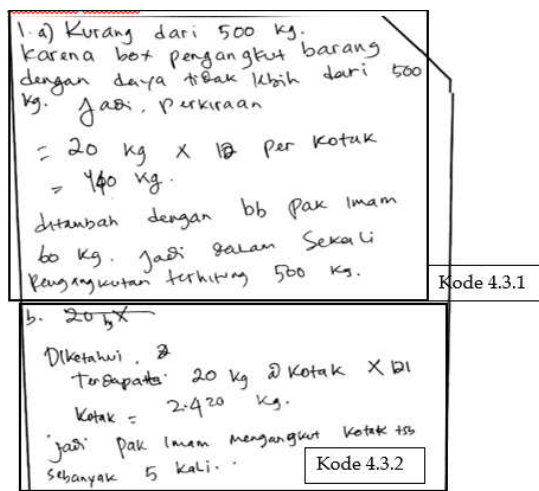 1. a) Kurang dari 500 kg.
karena box pengangkut barang
dengan daya tidak lebih dari 500
kg. Jadi, perkiraan
= 20 kg x per kotak
= kg.
ditambah dengan bb pak Imam
60 kg. Jadi dalam Sekali
Pengangkutan terhitung 500 kg.
Kode 4.3.1
b.
Diketahui,
Terdapat 20 kg @ kotak x 121
kotak = 2.420 kg.
jadi pak Imam mengangkut kotak tsb
sebanyak 5 kali.
Kode 4.3.2